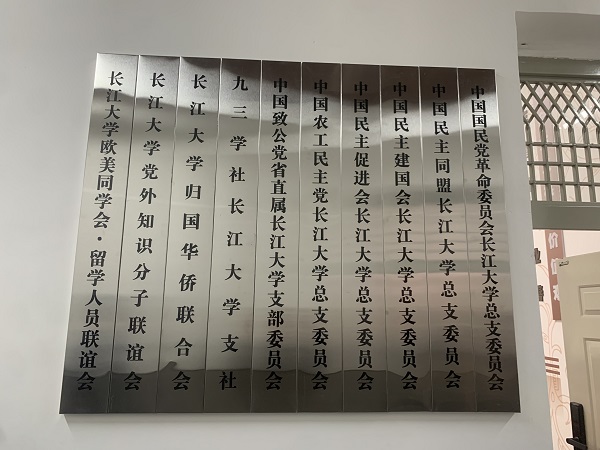 中国国民党革命委员会长江大学总支委员会
中国民主同盟长江大学总支委员会
中国民主建国会长江大学总支委员会
中国民主促进会长江大学总支委员会
中国农工民主党长江大学总支委员会
中国致公党省直属长江大学支部委员会
九三学社长江大学支社
长江大学归国华侨联合会
长江大学党外知识分子联谊会
长江大学欧美同学会·留学人员联谊会